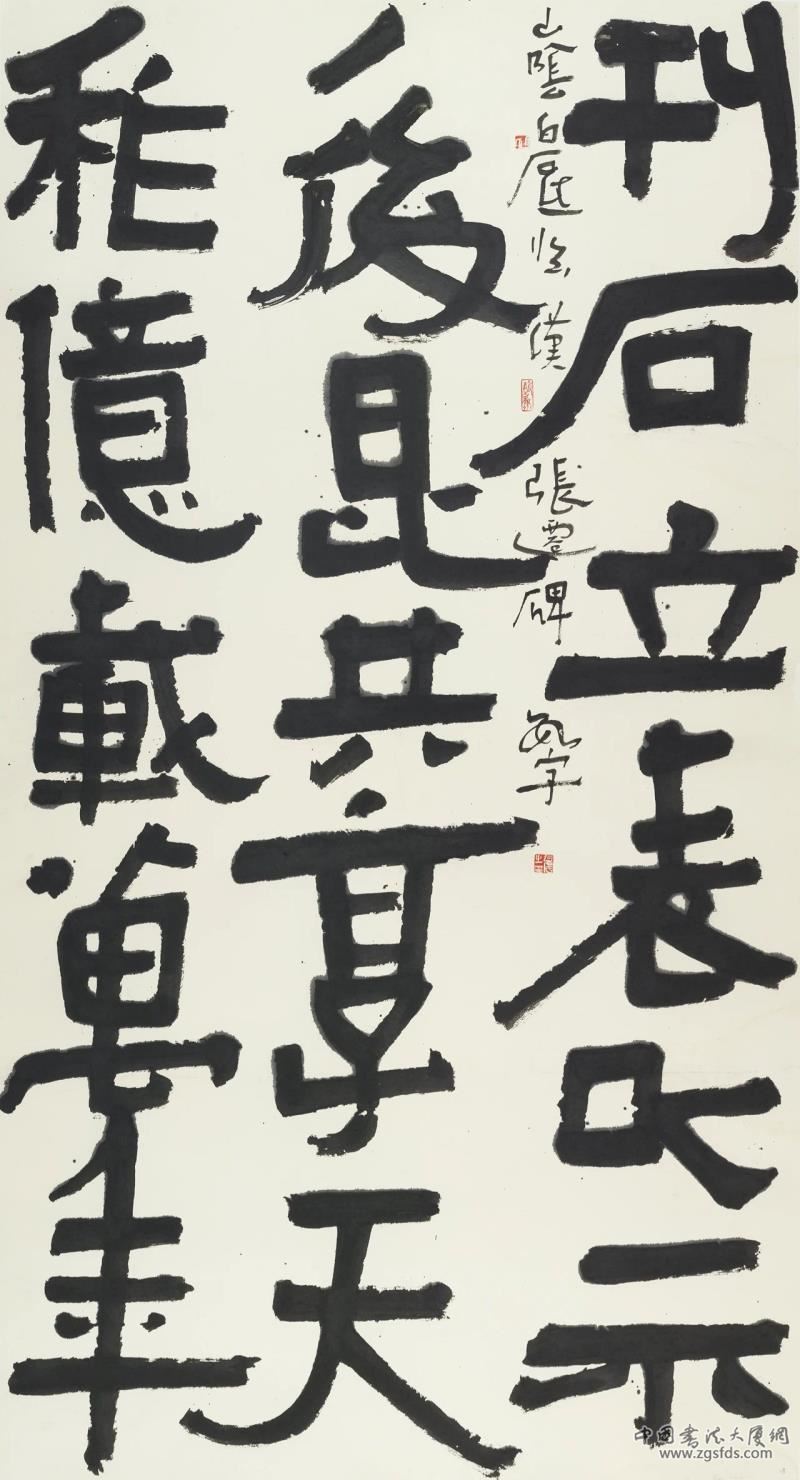 刊石立表以示
後昆共享天
祚億載萬年
山陰白砥臨漢張遷碑數字
中國書法大廈網
www.zgsfds.com